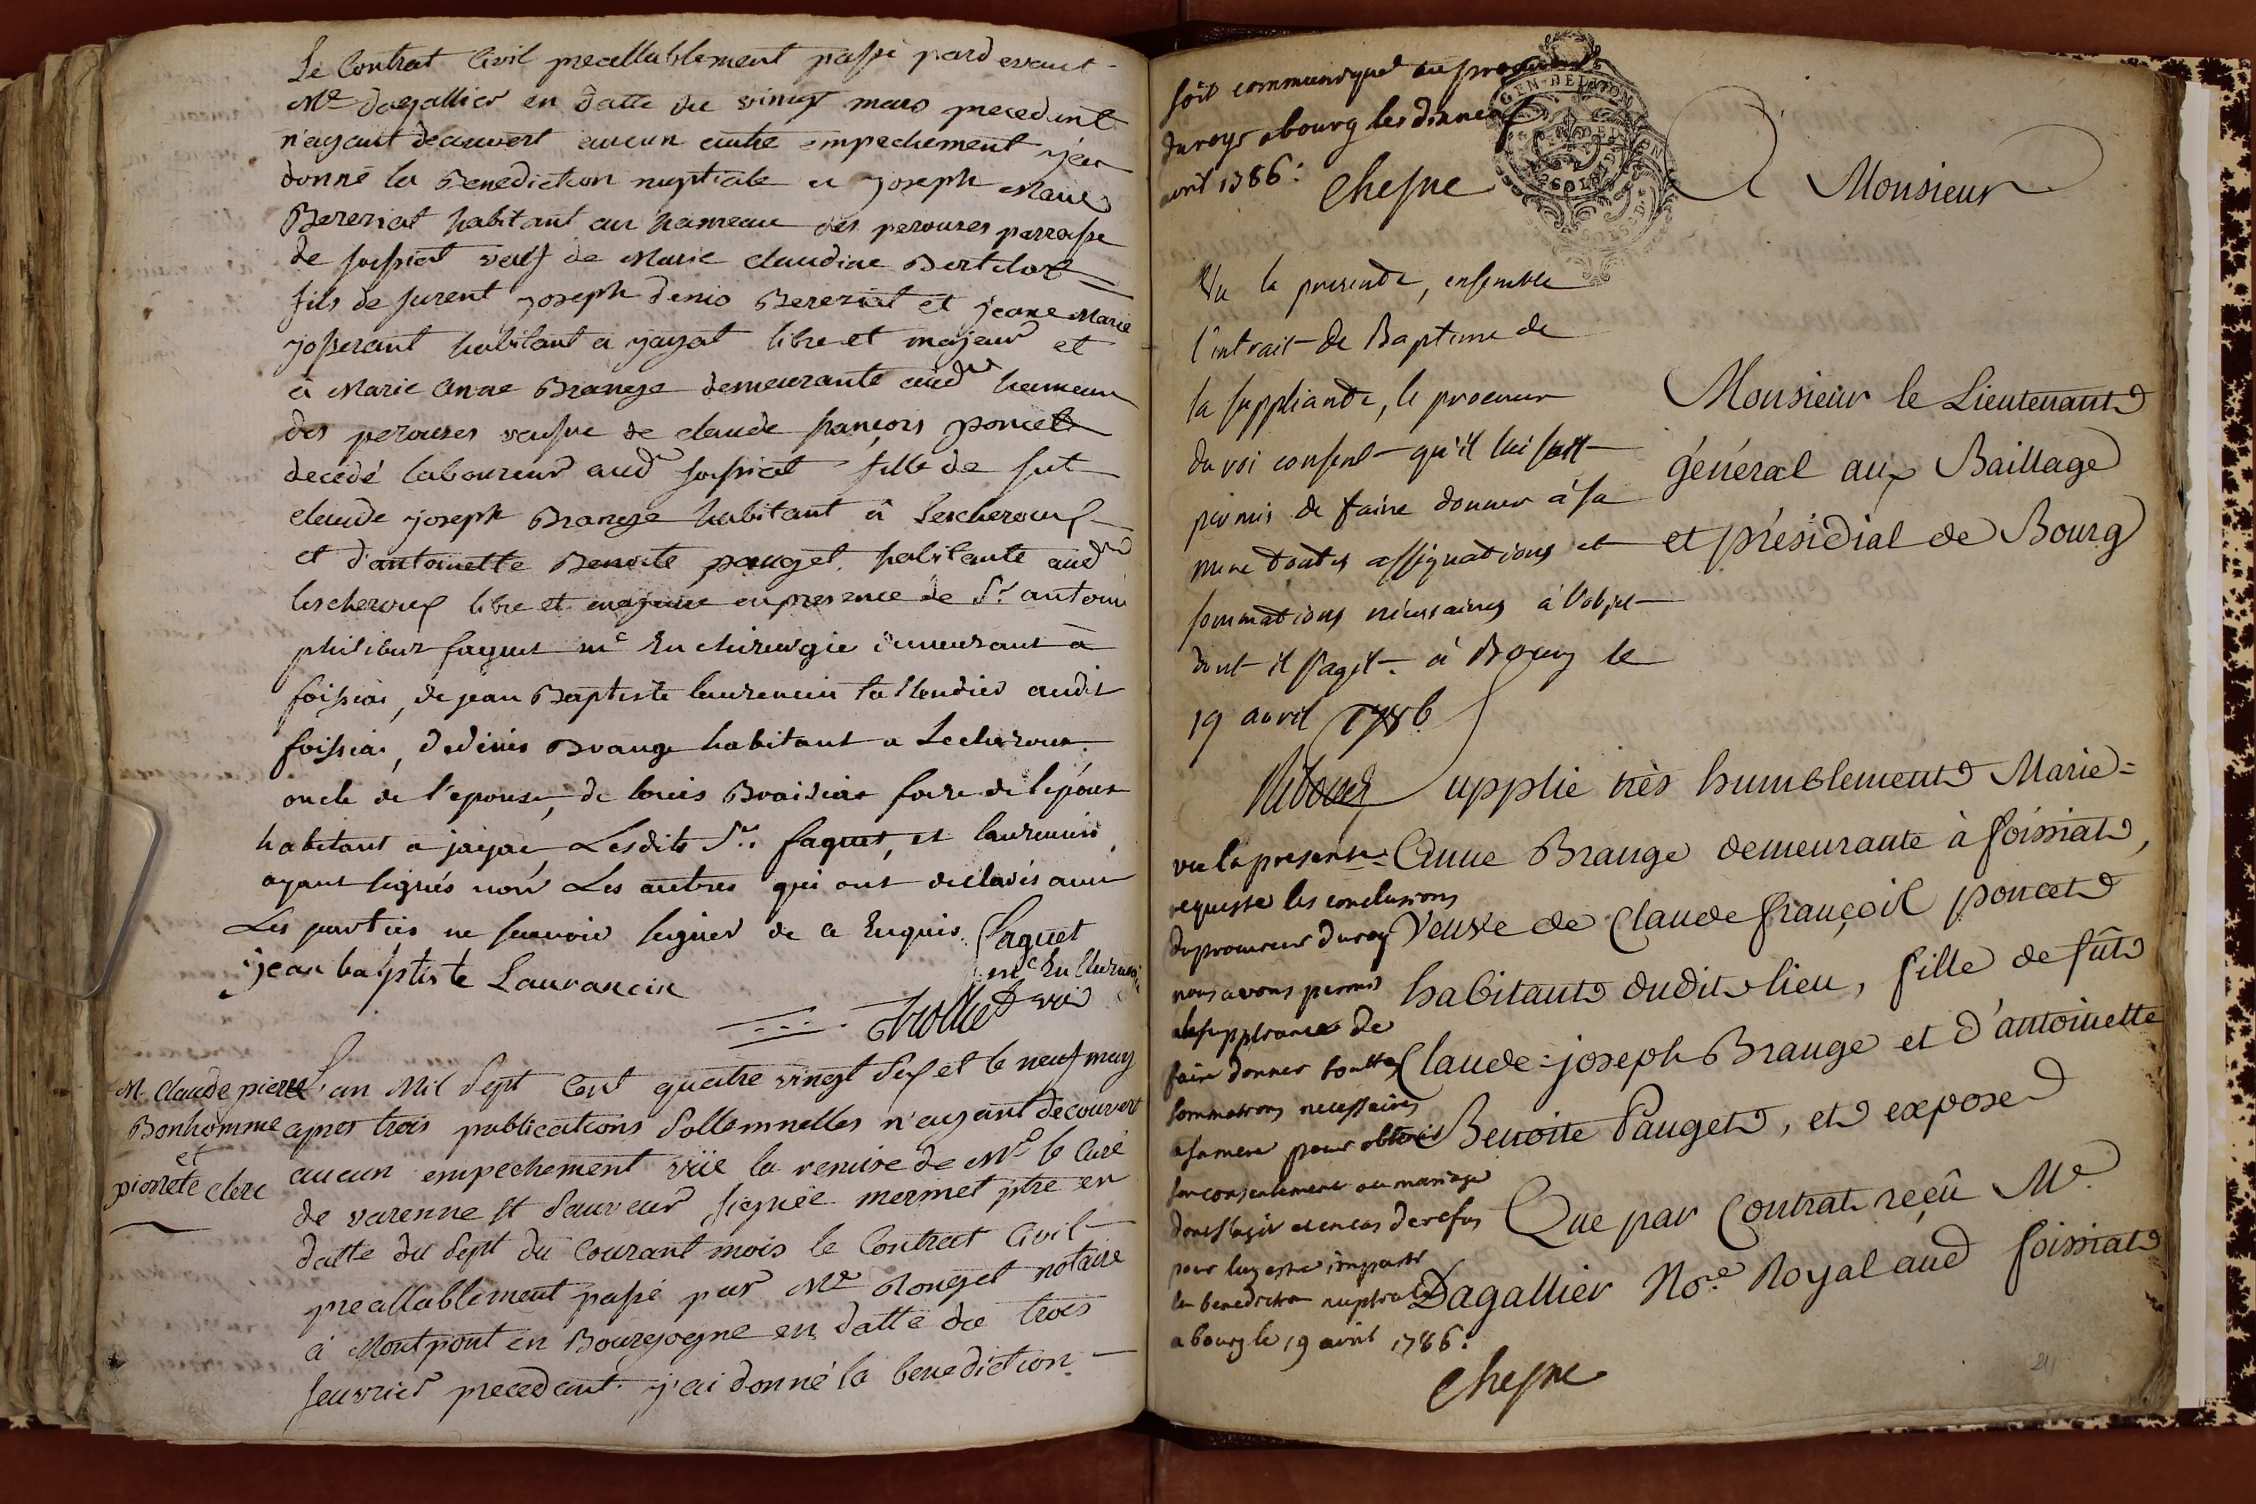 Le Contrat Civil preallablement passé pardevant
Me Dagallier en datte du vingt mars precedent
n'ayant decouvert aucun autre empechement j'ai
donné la Benediction nuptiale a joseph Marie
Bereziat habitant au hameau des perouses parroisse
de foissiat veuf de Marie claudine Bertelot
fils de furent joseph denis Bereziat et jeane Marie
josserant habitant a jayat libre et majeur et
a Marie Anne Brange demeurante aud hameau
des perouses veufve de claude françois poncet
decedé laboureur aud foissiat fille de fut
claude joseph Brange habitant à Lescheroux
et d'antoinette Benoite pauget habitante aud
lescheroux libre et majeure en presence de Sr antoine
philibert faguet me En chirurgie demeurant à
foissia, de jean Baptiste laurencin taillandier audit
foissia, de denis Brange habitant a Lecheroux
oncle de l'epouse, de louis Braisia frere de l'epoux
habitant a jayac, Lesdits Srs faguet, et laurencin,
ayant signés non Les autres qui ont declarés avec
Les parties ne scavoir signer de ce Enquis. faguet
me En chirurgie
jean baptiste Laurancin
M. Claude pierre
Bonhomme
et
pierrete clerc
L'an Mil Sept Cent quatre vingt Six et le neuf may
apres trois publications Sollemnelles n'ayant decouvert
aucun empechement vüe la remise de Mr le Curé
de varenne St Sauveur signée mermet ptre en
datte du Sept du Courant mois le Contrat Civil
preallablement passé par Me Rouget notaire
à Montpont en Bourgogne en datte du trois
feuvrier precedent j'ai donné la benediction
soit communiqué au procureur
du roy a bourg les dixneuf
avril 1786:
Chesne
GEN. DE DIJON
A Monsieur
Monsieur le Lieutenant
général aux Baillage
et présidial de Bourg
Vu la presente, ensemble
l'extrait de Baptême de
la suppliante, le procureur
du roi consent qu'il lui soit
permis de faire donner à sa
mere toutes assignations et
sommations nécessaires à l'objet
dont il s'agit. à Bourg le
19 avril 1786
Riboud
Supplie très humblement Marie=
Anne Brange demeurante à foissiat,
Veuve de Claude françois poncet
habitant dudit lieu, fille de fût
Claude=joseph Brange et d'antoinette
Benoite Pauget, et expose
Que par Contrat reçû Me
Dagallier Nore Royal aud foissiat
vu la presente
requeste les conclusions
du procureur du roy
nous avons permis
a la suppliante de
faire donner touttes
sommations necessaires
a sa mere pour obtenir
son consentement au mariage
dont s'agit et en cas de refus
pour luy estre impartie
la benediction nuptiale
a bourg le 19 avril 1786:
Chesne